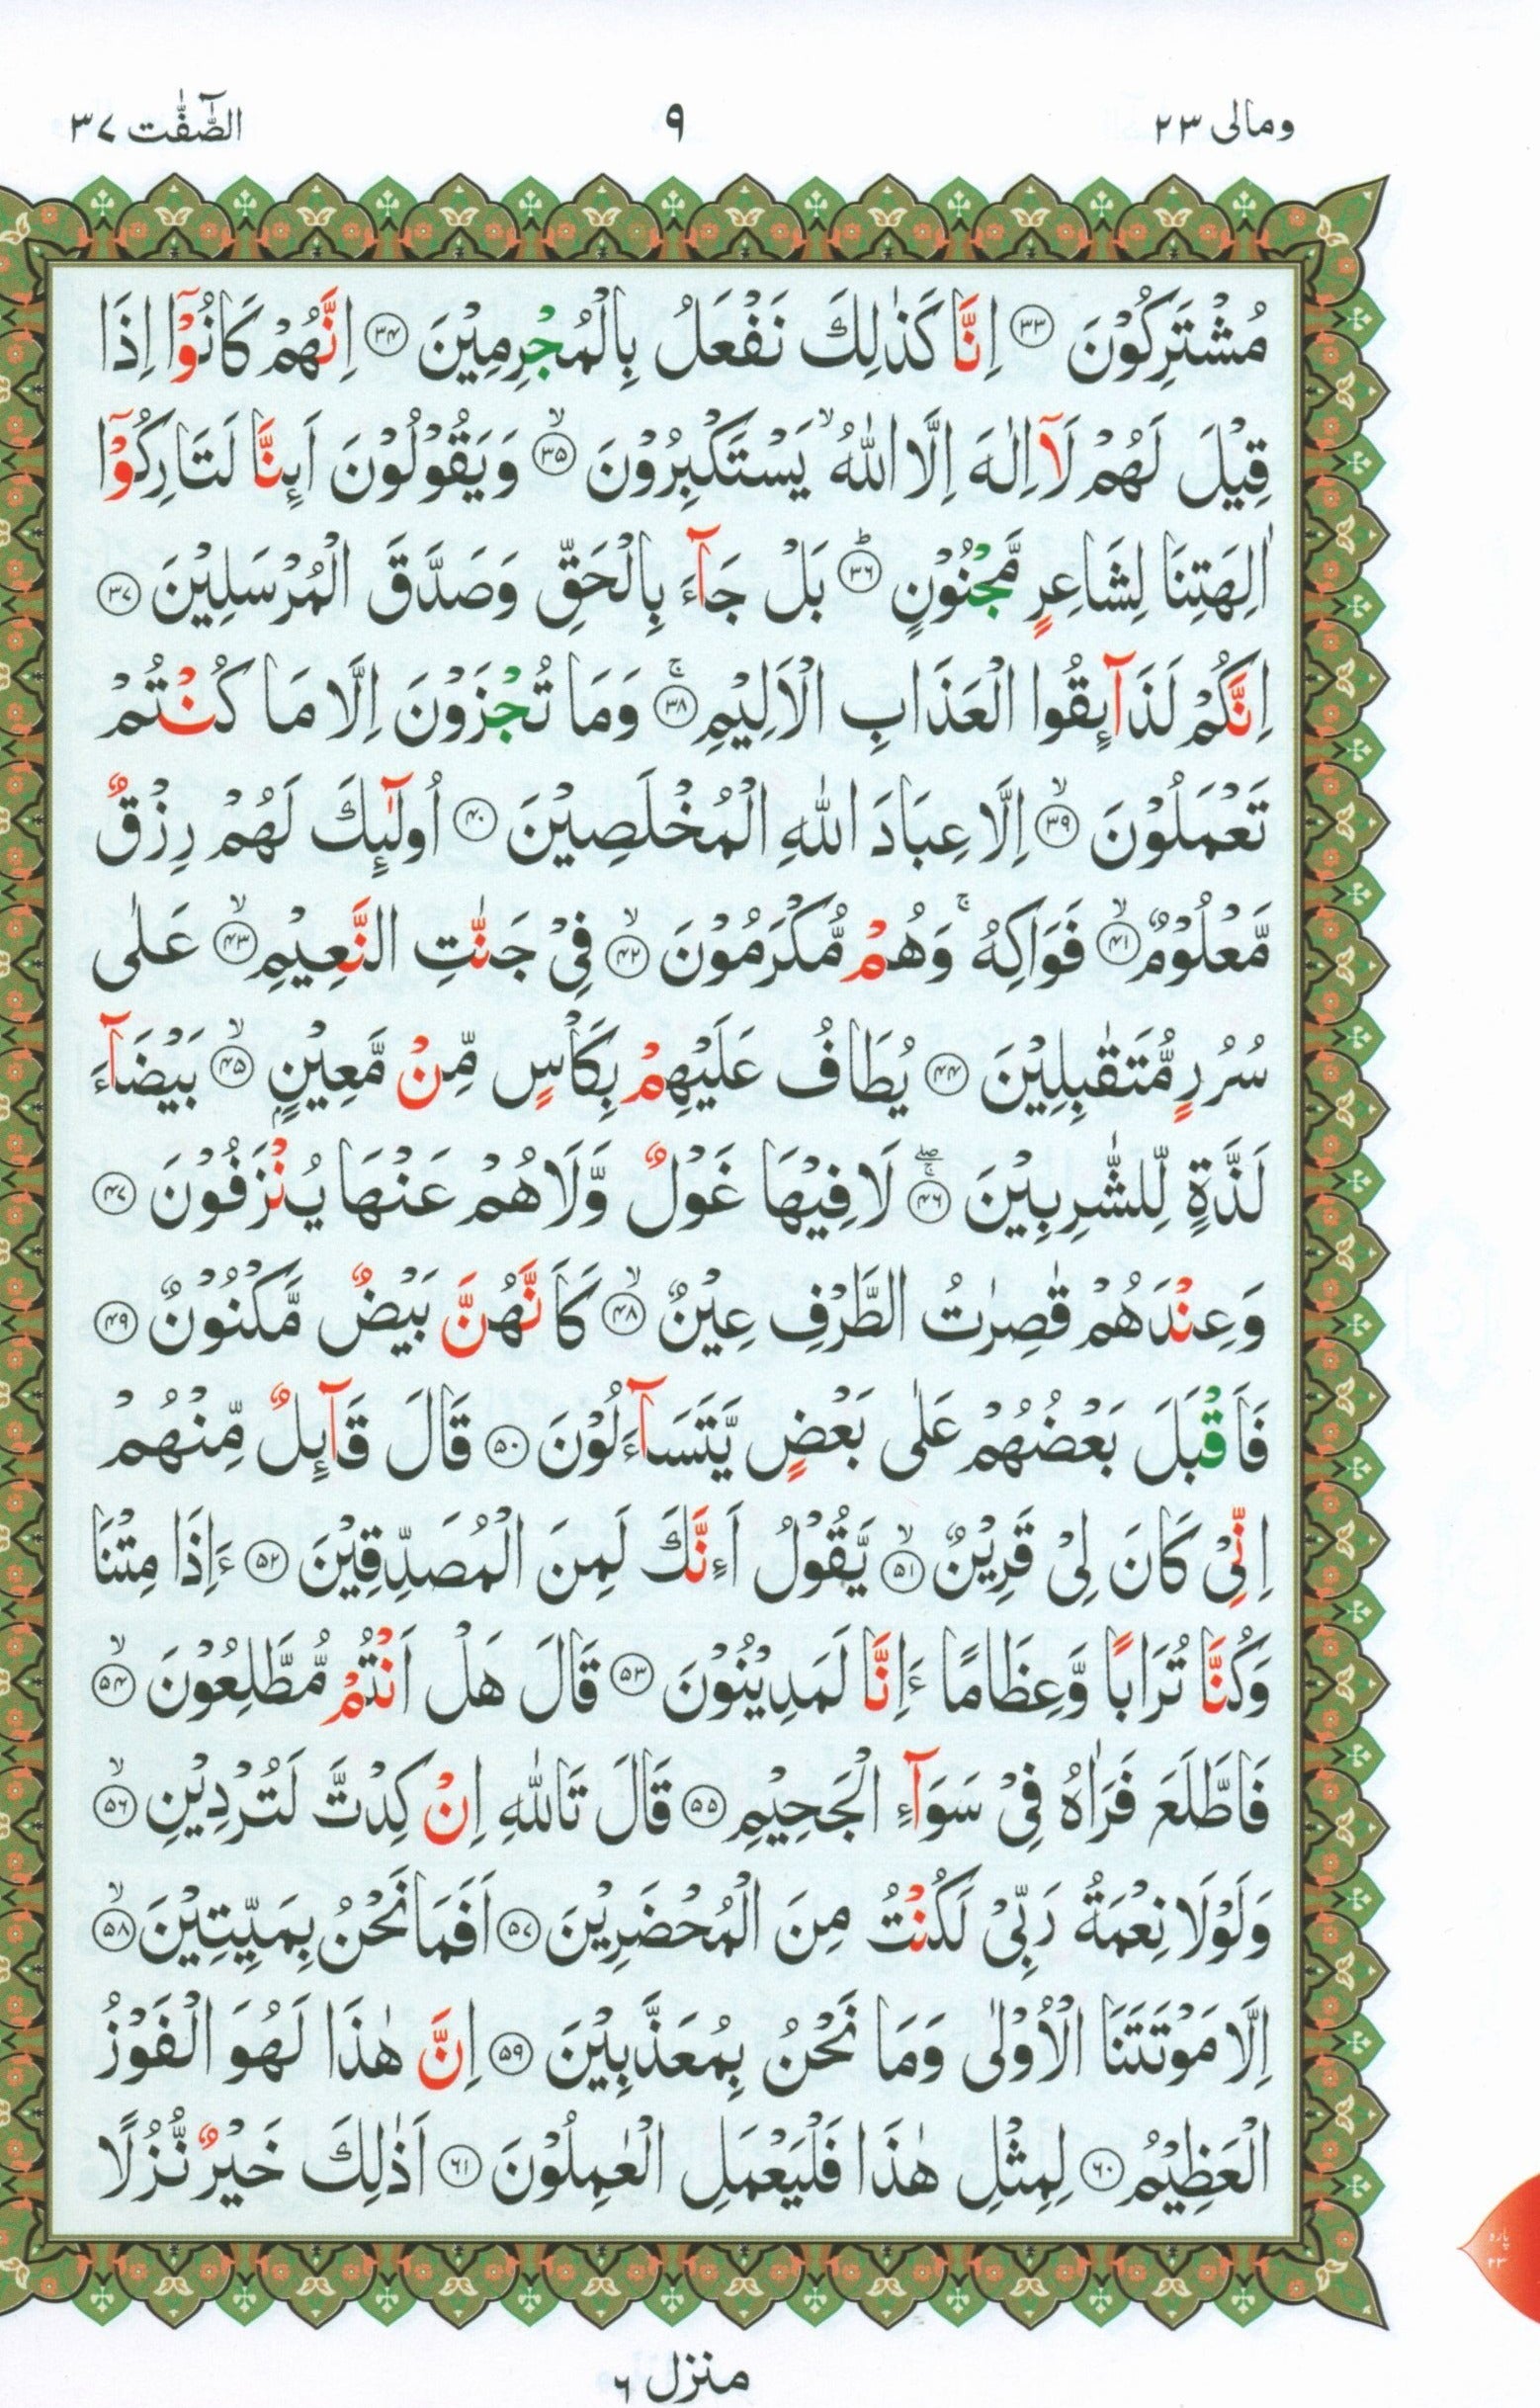 ومالی ٢٣ ٩ الصّٰٓفّٰت ٣٧
مُشْتَرِكُوْنَ ﴿٣٣﴾ اِنَّا كَذٰلِكَ نَفْعَلُ بِالْمُجْرِمِيْنَ ﴿٣٤﴾ اِنَّهُمْ كَانُوْۤا اِذَا
قِيْلَ لَهُمْ لَاۤ اِلٰهَ اِلَّا اللّٰهُ ۙ يَسْتَكْبِرُوْنَ ﴿٣٥﴾ۙ وَيَقُوْلُوْنَ اَىِٕنَّا لَتَارِكُوْۤا
اٰلِهَتِنَا لِشَاعِرٍ مَّجْنُوْنٍ ﴿٣٦﴾ؕ بَلْ جَآءَ بِالْحَقِّ وَصَدَّقَ الْمُرْسَلِيْنَ ﴿٣٧﴾
اِنَّكُمْ لَذَآىِٕقُوا الْعَذَابِ الْاَلِيْمِ ﴿٣٨﴾ۚ وَمَا تُجْزَوْنَ اِلَّا مَا كُنْتُمْ
تَعْمَلُوْنَ ﴿٣٩﴾ۙ اِلَّا عِبَادَ اللّٰهِ الْمُخْلَصِيْنَ ﴿٤٠﴾ اُولٰٓىِٕكَ لَهُمْ رِزْقٌ
مَّعْلُوْمٌ ﴿٤١﴾ۙ فَوَاكِهُ ۚ وَهُمْ مُّكْرَمُوْنَ ﴿٤٢﴾ۙ فِيْ جَنّٰتِ النَّعِيْمِ ﴿٤٣﴾ۙ عَلٰى
سُرُرٍ مُّتَقٰبِلِيْنَ ﴿٤٤﴾ يُطَافُ عَلَيْهِمْ بِكَاْسٍ مِّنْ مَّعِيْنٍۭ ﴿٤٥﴾ۙ بَيْضَآءَ
لَذَّةٍ لِّلشّٰرِبِيْنَ ﴿٤٦﴾ۚۖ لَا فِيْهَا غَوْلٌ وَّلَا هُمْ عَنْهَا يُنْزَفُوْنَ ﴿٤٧﴾
وَعِنْدَهُمْ قٰصِرٰتُ الطَّرْفِ عِيْنٌ ﴿٤٨﴾ۙ كَاَنَّهُنَّ بَيْضٌ مَّكْنُوْنٌ ﴿٤٩﴾
فَاَقْبَلَ بَعْضُهُمْ عَلٰى بَعْضٍ يَّتَسَآءَلُوْنَ ﴿٥٠﴾ قَالَ قَآىِٕلٌ مِّنْهُمْ
اِنِّيْ كَانَ لِيْ قَرِيْنٌ ﴿٥١﴾ۙ يَّقُوْلُ اَءِنَّكَ لَمِنَ الْمُصَدِّقِيْنَ ﴿٥٢﴾ ءَاِذَا مِتْنَا
وَكُنَّا تُرَابًا وَّعِظَامًا ءَاِنَّا لَمَدِيْنُوْنَ ﴿٥٣﴾ قَالَ هَلْ اَنْتُمْ مُّطَّلِعُوْنَ ﴿٥٤﴾ۙ
فَاطَّلَعَ فَرَاٰهُ فِيْ سَوَآءِ الْجَحِيْمِ ﴿٥٥﴾ قَالَ تَاللّٰهِ اِنْ كِدْتَّ لَتُرْدِيْنِ ﴿٥٦﴾ۙ
وَلَوْلَا نِعْمَةُ رَبِّيْ لَكُنْتُ مِنَ الْمُحْضَرِيْنَ ﴿٥٧﴾ اَفَمَا نَحْنُ بِمَيِّتِيْنَ ﴿٥٨﴾ۙ
اِلَّا مَوْتَتَنَا الْاُوْلٰى وَمَا نَحْنُ بِمُعَذَّبِيْنَ ﴿٥٩﴾ اِنَّ هٰذَا لَهُوَ الْفَوْزُ
الْعَظِيْمُ ﴿٦٠﴾ لِمِثْلِ هٰذَا فَلْيَعْمَلِ الْعٰمِلُوْنَ ﴿٦١﴾ اَذٰلِكَ خَيْرٌ نُّزُلًا
پارہ
٢٣
منزل ٦